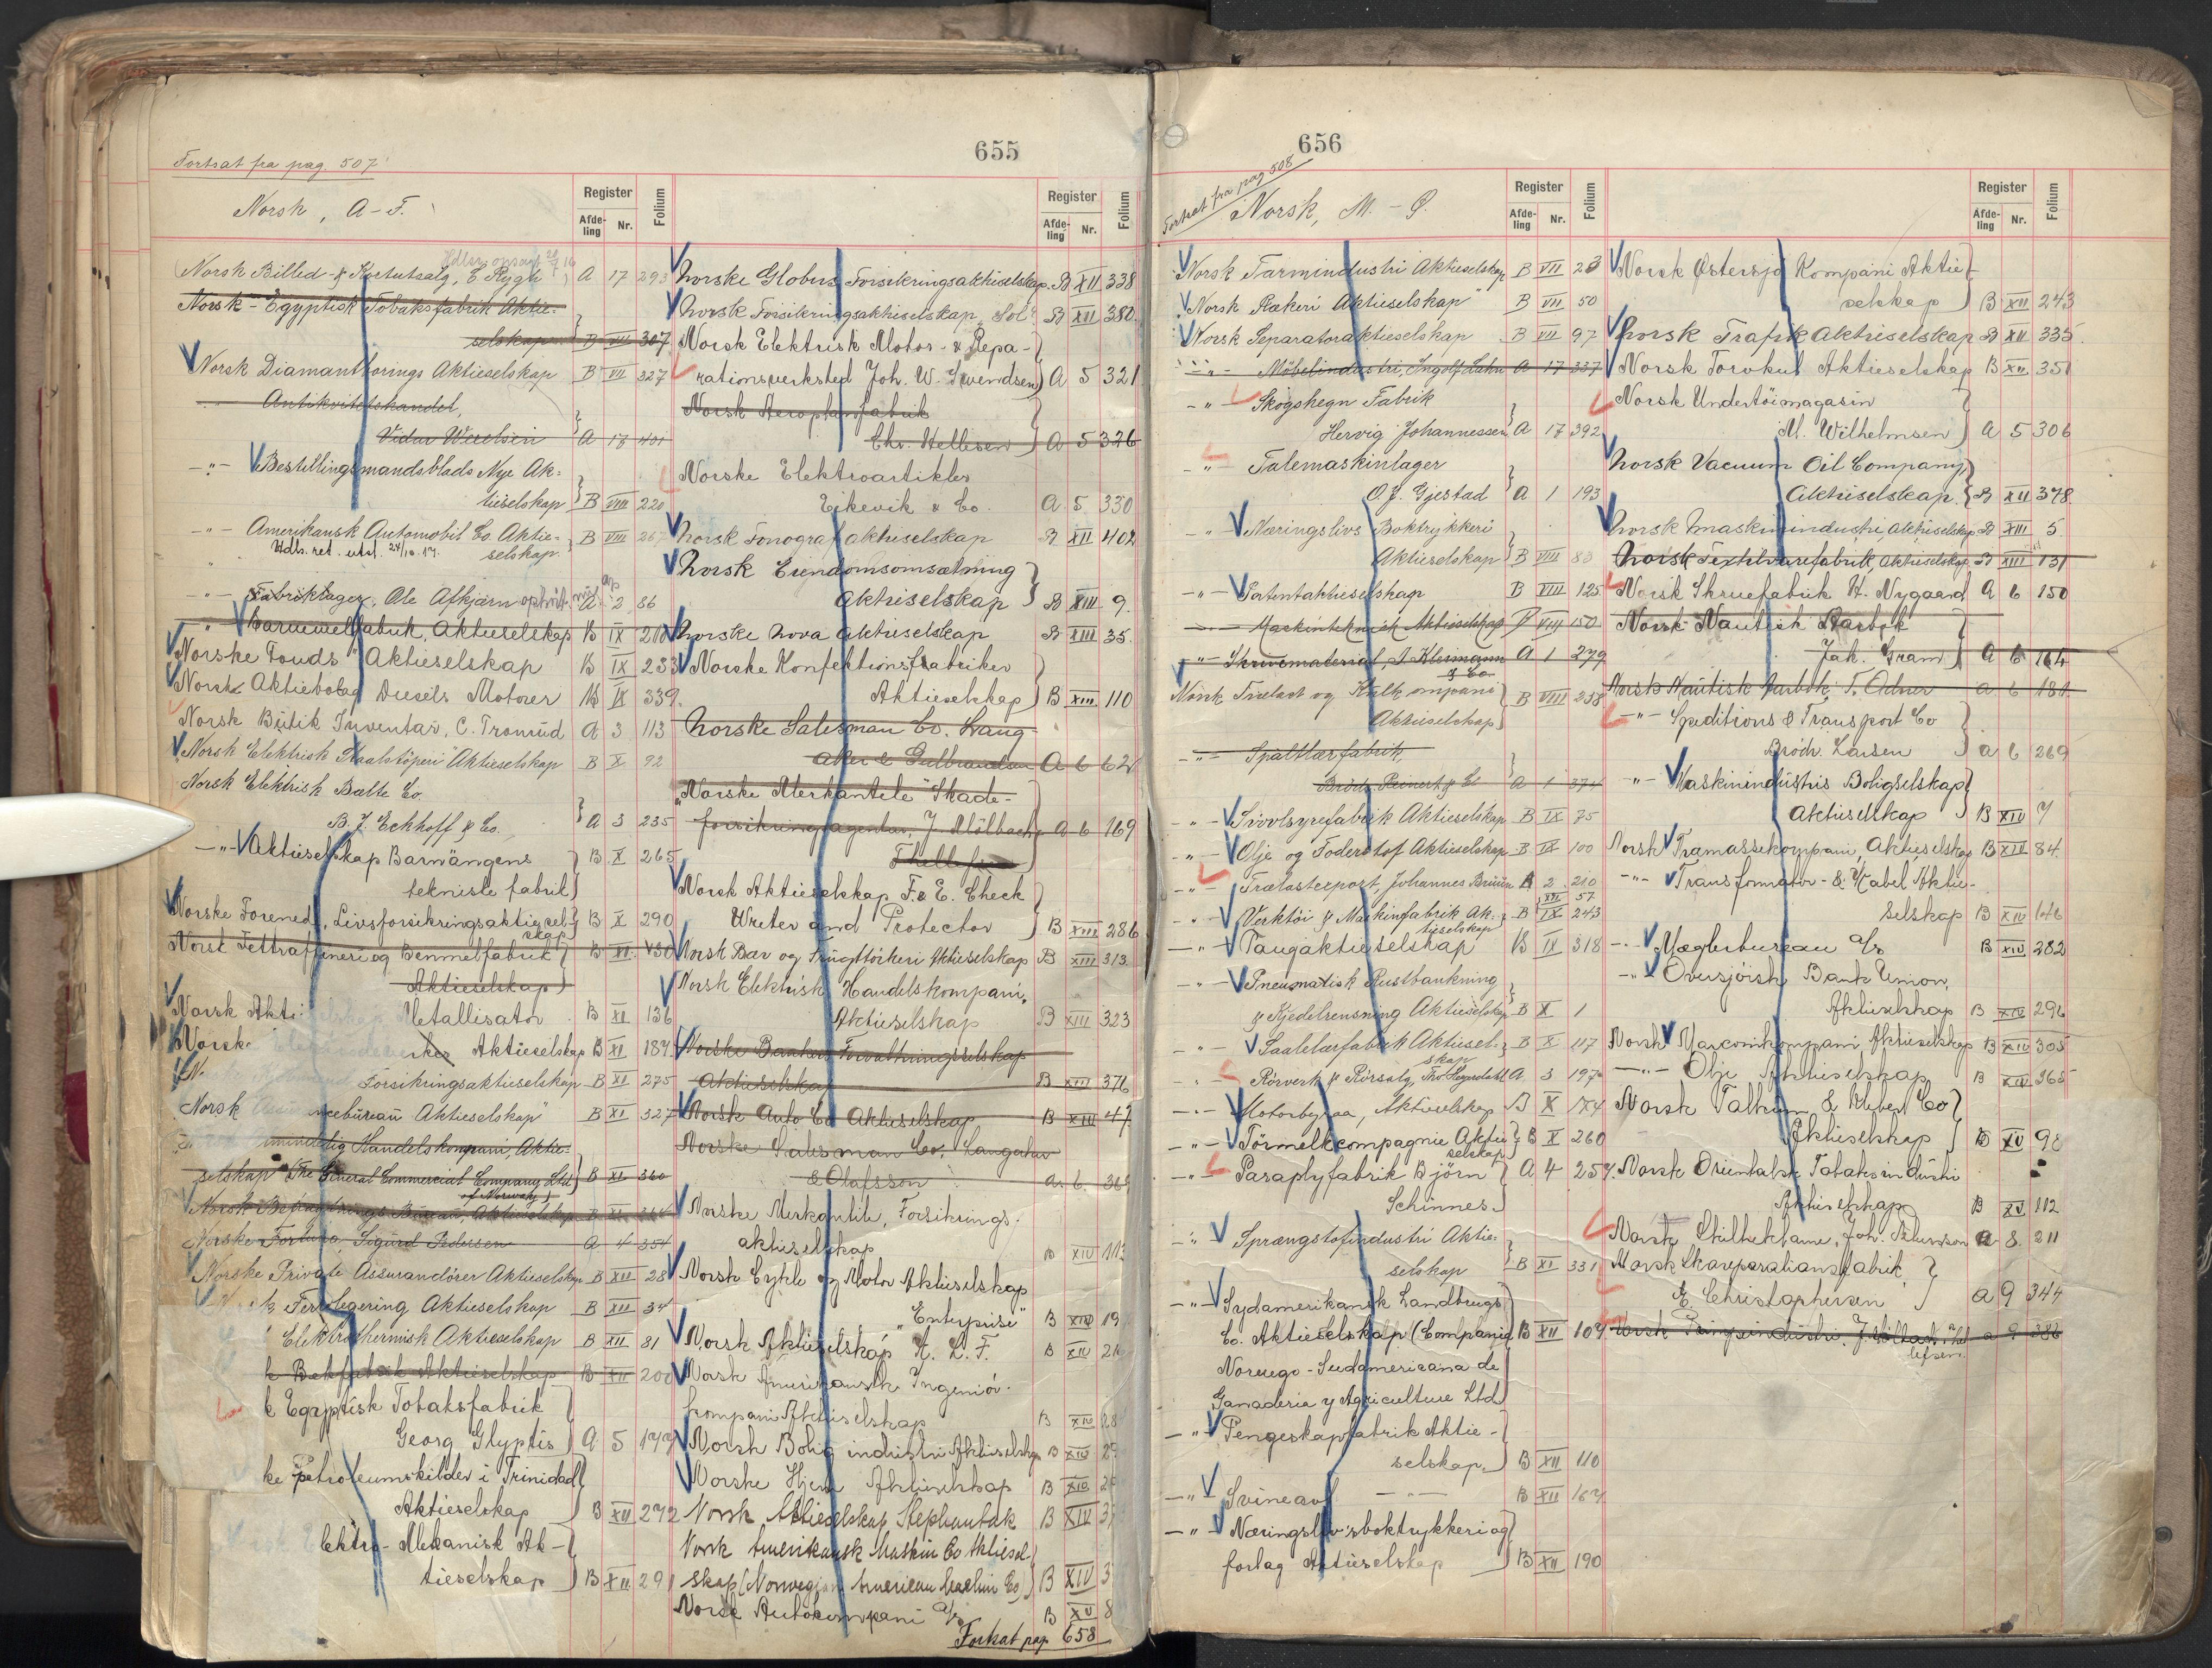 655
Fortsat fra pag. 507
Norsk, A-F.
Register
Afde-ling Nr. Folium
Norsk Billed- & Kortutsalg, E. Rygh A 17 293
Norsk-Egyptisk Tobaksfabrik Aktie-
selskap B VII 307
Norsk Diamantborings Aktieselskap B VII 327
Antikvitetshandel,
Vidar Werelsen A 17 401
-"- Bestillingsmandsblads Nye Ak-
tieselskap B VIII 220
-"- Amerikansk Automobil Co. Aktie-
selskap. B VIII 267
Hdls. ret. utsl. 24/10.17.
-"- Fabriklager, Ole Afkjærn A 2 86
-"- Aktieselskap B IX
Norske Fonds Aktieselskap B IX 233
Norsk Aktiebolag Diesels Motorer B IX 339.
Norsk Butik Inventar, C. Tronrud A 3 113
Norsk Elektrisk Staalstøperi Aktieselskap B X 92
Norsk Elektrisk Bælte Co.
B. J. Eckhoff & Co. A 3 235
-"- Aktieselskap Barnängens B. X 265
tekniske fabrik
Norske Forenede, Livsforsikringsaktiesel- B X 290
skap
Norsk Fettraffineri og Benmelfabrik B XI. 450
Aktieselskap
Norsk Akti Metallisator B XI 136
Norsk Aktieselskap B XI 187
Forsikringsaktieselskap B XI 275
Norsk ncebureau Aktieselskap B XI 327
Handelskompani, Aktie-
selskap (The General Commercial Company Ltd. B XI 360
of Norway)
Norsk Befragtnings Bureau, Aktieselskap B XI
Norske Fortuna, Sigurd Pedersen A 4 354
Norske Private Assurandører Aktieselskap B XII 28
k Ferrolegering Aktieselskap B XII 34
Elektrothermisk Aktieselskap B XII 81
k Aktieselskap B XII 200
k Egyptisk Tobaksfabrik
Georg Glyptis A 5 177
ke Petroleumskilder i Trinidad
Aktieselskap B XII 272
lektro-Mekanisk Ak-
tieselskap B XII 291
Register
Afde-ling Nr. Folium
Norske Globus Forsikringsaktieselskap B XII 338
Norsk Forsikringsaktieselskap "Sol" B XII 380.
Norsk Elektrisk Motor- & Repa-
rationsverksted Joh. W. Svendsen A 5 321
Norsk Aeroplanfabrik
Chr. Hellesen A 5 326
Norske Elektroartikler
Eikevik & Co. A. 5. 330
Norsk Fonograf aktieselskap B XII 402
Norsk Eiendomsomsætning
Aktieselskap B XIII 9.
Norske Nova Aktieselskap B XIII 35.
Norske Konfektionsfabriker
Aktieselskap B XIII. 110
Norske Salesman Co. Lang-
aker & Gulbrandsen A 6 62
"Norske Merkantile" Skade-
forsikringsagentur, J. Mölbach A 6 169
Thellefsen
Norsk Aktieselskap F. & E. Check
Writer and Protector B XIII 286
Norsk Bær og Frugttørkeri Aktieselskap B XIII 313.
Norsk Elektrisk Handelskompani,
Aktieselskap B XIII 323
Norske Bankers Forvaltningsselskap
Aktieselskap B XIII 376
Norsk Auto Co Aktieselskap B XIV 47
Norske Salesman Co, Langaker
& Olafsson A. 6.
Norske Merkantile, Forsikrings-
aktieselskap B XIV 113
Norsk Cykle og Motor Aktieselskap
"Enterprise" B XIV 19
Norsk Aktieselskap A. L. F. B XIV
Norsk Amerikansk Ingeniør-
kompani Aktieselskap B XIV 28
Norsk Bolig industri Aktieselskap B XIV
Norske Hjem Aktieselskap B XIV
Norsk Aktieselskap Stephantak B XIV 3
Norsk Amerikansk Maskin Co Aktiesel-
skap (Norwegian American Machin Co) B XIV 3
Norsk Autokompani A/s B XV 8
Fortsat pag 658
656
Fortsat fra pag 508
Norsk, M. - Ø.
Register
Afde-ling Nr. Folium
Norsk Tarmindustri Aktieselskap B VII 23
Norsk Rækeri Aktieselskap B VII 50
Norsk Separatoraktieselskap B VII 97
-"- Möbelindustri, Ingolf Lahn A 17 337
-"- Skogshegn Fabrik
Hervig Johannessen A 17 392
-"- Talemaskinlager
O. J. Gjestad A 1 193
-"- Næringslivs Boktrykkeri
Aktieselskap B VIII 83
-"- Patentaktieselskap B VIII 125
-"- Maskinteknisk Aktieselskap B VIII 150
-"- Skruemateriel, A. Kleimann A 1 279
& Co
Norsk Trælast og Kulkompani B VIII 258
Aktieselskap
-"- Spaltlærfabrik,
Brödr. Reinert & Co A 1 371
-"- Svovlsyrefabrik Aktieselskap B IX 75
-"- Olje og Foderstof Aktieselskap B IX 100
-"- Trælastexport, Johannes Bruun A 2 210
-"- Verktøi & Maskinfabrik Ak- B IX 243
tieselskap XII 57
-"- Taugaktieselskap B IX 318
-"- Pneumatisk Rustbankning
& Kjedelrensning Aktieselskap B X 1
-"- Saalelærfabrik Aktiesel- B X 117
skap
-"- Rörverk & Rörsalg, Thv. A 3 197
-"- Motorbyraa, Aktieselskap B X 174
-"- Törmelkcompagnie Aktie- B X 260
selskap
-"- Paraplyfabrik Björn A 4 254.
Schinnes.
-"- Sprængstofindustri Aktie-
selskap B XI 331
-"- Sydamerikansk Landbrugs
Co. Aktieselskap. (Compania B XII 107
Noruego-Sudamericana de
Ganaderia y Agriculture Ltd
-"- Pengeskapfabrik Aktie-
selskap. B XII 110
-"- Svineavl -"- B XII 167
-"- Næringsliv's boktrykkeri og
forlag Aktieselskap B XII 190
Register
Afde-ling Nr. Folium
Norsk Østersjø Kompani Aktie-
selskap B XII 243
Norsk Trafik Aktieselskap B XII 335.
Norsk Torvkul Aktieselskap B XII. 351
Norsk Undertöimagasin
M. Wilhelmsen A 5 306
Norsk Vacuum Oil Company
Aktieselskap. B XII 378
Norsk Maskinindustri, Aktieselskap B XIII 5.
Norsk Textilvarefabrik, Aktieselskap B XIII 131
Norsk Skruefabrik H. Nygaard A 6 150
Norsk Nautisk Aarbok
Jak. Gram A 6 164
Norsk Nautisk Aarbok, T. Odner A 6 180.
-"- Speditions & Transport Co
Brödr. Larsen A 6 269
-"- Maskinindustris Boligselskap
Aktieselskap B XIV 7
Norsk Tramassekompani, Aktieselskap B XIV 84.
-"- Transformator- & Kabel Aktie-
selskap B XIV 146
-"- Mæglerbureau A/s B XIV 282
-"- Oversjøisk Bank Union,
Aktieselskap B XIV 296
Norsk Marconikompani, Aktieselskap B XIV 305
-"- Olje Aktieselskap B XIV 365
Norsk Talkum & Kleber Co
Aktieselskap B XV 98
Norsk Orientalsk Tobaksindustri
Aktieselskap B XV 112
Norsk Skiltreklame, Joh. A 8. 211
Norsk Skareparationsfabrik,
E. Christophersen A 9 344
Norsk A 9 386